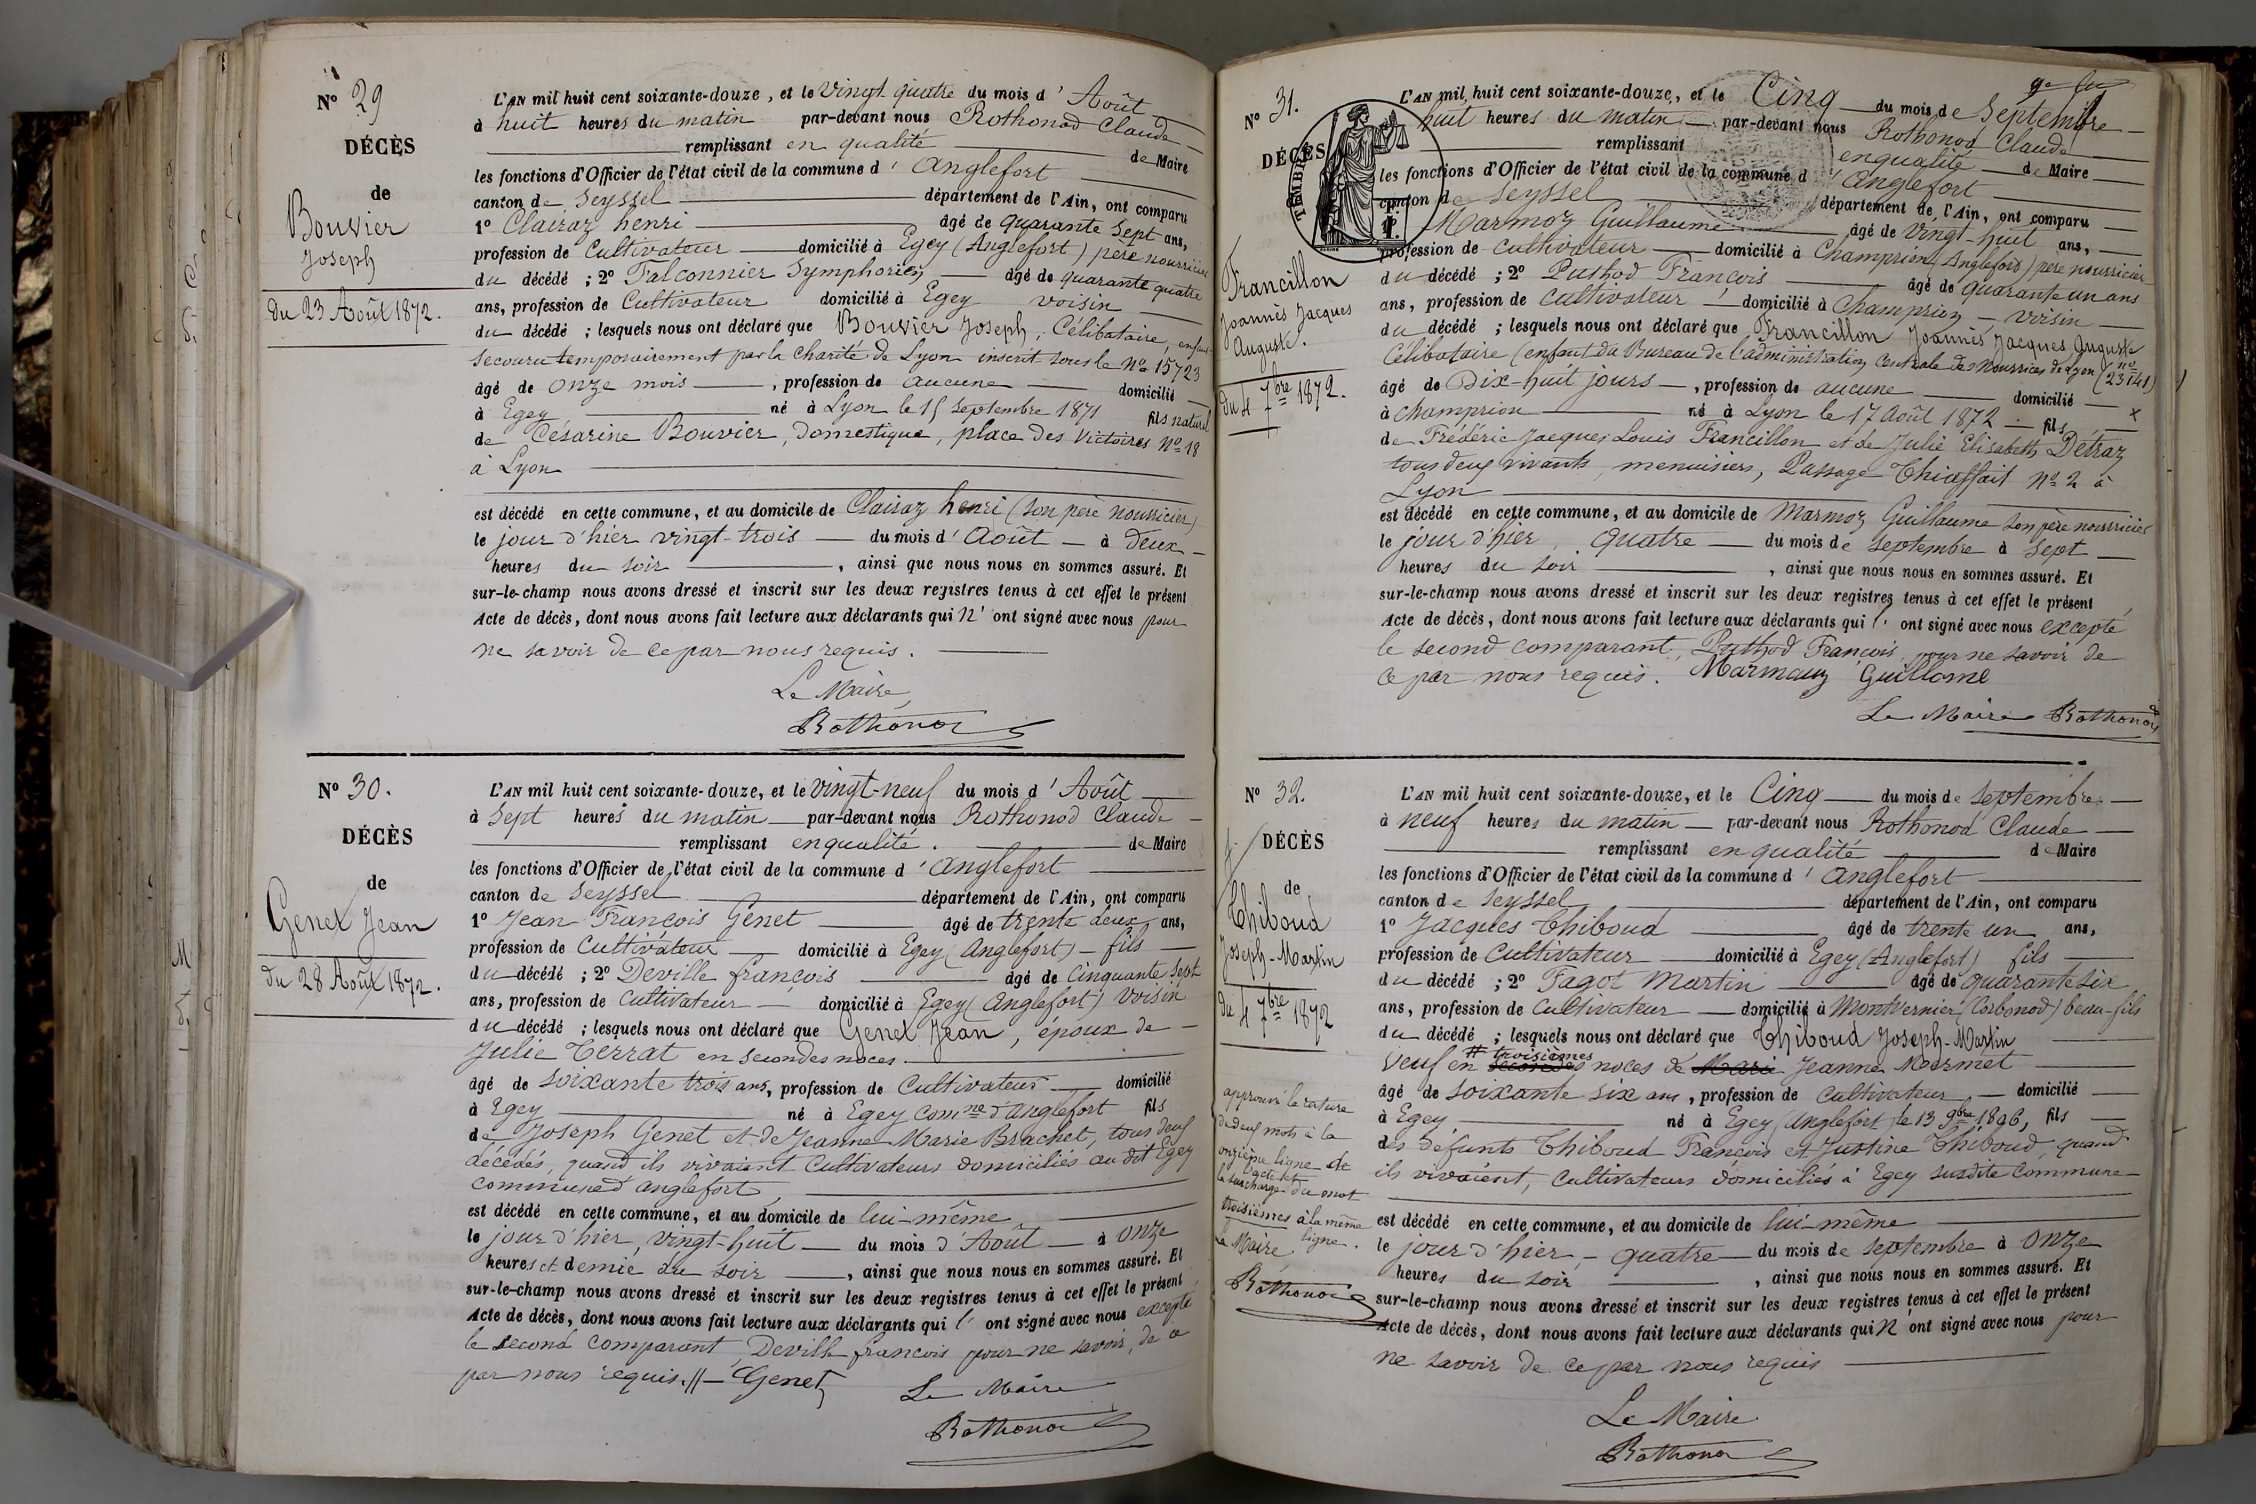 N° 29
DÉCÈS
de
Bouvier
Joseph
du 23 Août 1872.
L'AN mil huit cent soixante-douze, et le Vingt quatre du mois d'Août
à huit heures du matin par-devant nous Rothonod Claude
remplissant en qualité de Maire
les fonctions d'Officier de l'état civil de la commune d'Anglefort
canton de Seyssel département de l'Ain, ont comparu
1° Clairaz henri âgé de quarante sept ans,
profession de Cultivateur domicilié à Egey (Anglefort) père nourricier
du décédé ; 2° Falconnier Symphorien âgé de quarante quatre
ans, profession de Cultivateur domicilié à Egey voisin
du décédé ; lesquels nous ont déclaré que Bouvier Joseph, Célibataire, enfant
secouru temporairement par la Charité de Lyon inscrit sous le N° 15723
âgé de onze mois, profession de aucune domicilié
à Egey né à Lyon le 15 Septembre 1871 fils naturel
de Césarine Bouvier, domestique, place des Victoires N° 18
à Lyon
est décédé en cette commune, et au domicile de Clairaz henri (son père nourricier)
le jour d'hier vingt-trois du mois d'Août à deux
heures du soir, ainsi que nous nous en sommes assuré. Et
sur-le-champ nous avons dressé et inscrit sur les deux registres tenus à cet effet le présent
Acte de décès, dont nous avons fait lecture aux déclarants qui n'ont signé avec nous pour
ne savoir de ce par nous requis.
Le Maire
Rothonod
N° 30.
DÉCÈS
de
Genet Jean
du 28 Août 1872.
L'AN mil huit cent soixante-douze, et le vingt-neuf du mois d'Août
à Sept heures du matin par-devant nous Rothonod Claude
remplissant en qualité. de Maire
les fonctions d'Officier de l'état civil de la commune d'Anglefort
canton de Seyssel département de l'Ain, ont comparu
1° Jean François Genet âgé de trente deux ans,
profession de Cultivateur domicilié à Egey (Anglefort) fils
du décédé ; 2° Deville françois âgé de Cinquante Sept
ans, profession de Cultivateur domicilié à Egey (Anglefort) Voisin
du décédé ; lesquels nous ont déclaré que Genet Jean, époux de
Julie Terrat en secondes noces
âgé de soixante trois ans, profession de Cultivateur domicilié
à Egey né à Egey comne d'Anglefort fils
de Joseph Genet et de Jeanne Marie Brachet, tous deux
décédés, quand ils vivaient Cultivateurs domiciliés au dit Egey
commune d'anglefort
est décédé en cette commune, et au domicile de lui-même
le jour d'hier, vingt-huit du mois d'Août à onze
heures et demie du soir, ainsi que nous nous en sommes assuré. Et
sur-le-champ nous avons dressé et inscrit sur les deux registres tenus à cet effet le présent
Acte de décès, dont nous avons fait lecture aux déclarants qui l'ont signé avec nous excepté
le second comparant, Deville françois pour ne savoir, de ce
par nous requis. Genet
Le Maire
Rothonod
N° 31.
DÉCÈS
TIMBRE
Francillon
Joannès Jacques
Auguste.
du 4 7bre 1872.
L'AN mil huit cent soixante-douze, et le Cinq du mois de Septembre
huit heures du matin par-devant nous Rothonod Claude
remplissant en qualité de Maire
les fonctions d'Officier de l'état civil de la commune d'Anglefort
canton de Seyssel département de l'Ain, ont comparu
Marmoz Guillaume âgé de vingt-huit ans,
profession de Cultivateur domicilié à Champrion (Anglefort) père nourricier
du décédé ; 2° Puthod François âgé de quarante un ans
ans, profession de Cultivateur domicilié à Champrion voisin
du décédé ; lesquels nous ont déclaré que Francillon Joannès Jacques Auguste
Célibataire (enfant du Bureau de l'administration Centrale des Nourrices de Lyon (n° 23141)
âgé de Dix-huit jours, profession de aucune domicilié
à Champrion né à Lyon le 17 Août 1872 fils
de Frédéric Jacques Louis Francillon et de Julie Elisabeth Détraz
tous deux vivants, menuisiers, Passage Thiaffait N° 2 à
Lyon
est décédé en cette commune, et au domicile de Marmoz Guillaume son père nourricier
le jour d'hier, quatre du mois de Septembre à Sept
heures du soir, ainsi que nous nous en sommes assuré. Et
sur-le-champ nous avons dressé et inscrit sur les deux registres tenus à cet effet le présent
Acte de décès, dont nous avons fait lecture aux déclarants qui l'ont signé avec nous excepté
le second comparant, Puthod François, pour ne savoir de
ce par nous requis. Marmouz Guillome
Le Maire Rothonod
N° 32.
DÉCÈS
de
Thiboud
Joseph-Martin
du 4 7bre 1872
approuvé la rature
de deux mots à la
onzième ligne de
l'acte et
la surcharge du mot
troisièmes à la même
ligne.
Le Maire
Rothonod
L'AN mil huit cent soixante-douze, et le Cinq du mois de Septembre
à neuf heures du matin par-devant nous Rothonod Claude
remplissant en qualité de Maire
les fonctions d'Officier de l'état civil de la commune d'Anglefort
canton de Seyssel département de l'Ain, ont comparu
1° Jacques Thiboud âgé de trente un ans,
profession de Cultivateur domicilié à Egey (Anglefort) fils
du décédé ; 2° Fagot Martin âgé de quarante six
ans, profession de Cultivateur domicilié à Montvernier (Corbonod) beau-fils
du décédé ; lesquels nous ont déclaré que Thiboud Joseph-Martin
Veuf en secondes troisièmes noces de Marie Jeanne Mermet
âgé de soixante six ans, profession de Cultivateur domicilié
à Egey né à Egey (Anglefort) le 13 9bre 1806, fils
des défunts Thiboud François et Justine Thiboud, quand
ils vivaient, Cultivateurs domiciliés à Egey susdite Commune
est décédé en cette commune, et au domicile de lui-même
le jour d'hier quatre du mois de Septembre à onze
heures du soir, ainsi que nous nous en sommes assuré. Et
sur-le-champ nous avons dressé et inscrit sur les deux registres tenus à cet effet le présent
Acte de décès, dont nous avons fait lecture aux déclarants qui n'ont signé avec nous pour
ne savoir de ce par nous requis
Le Maire
Rothonod